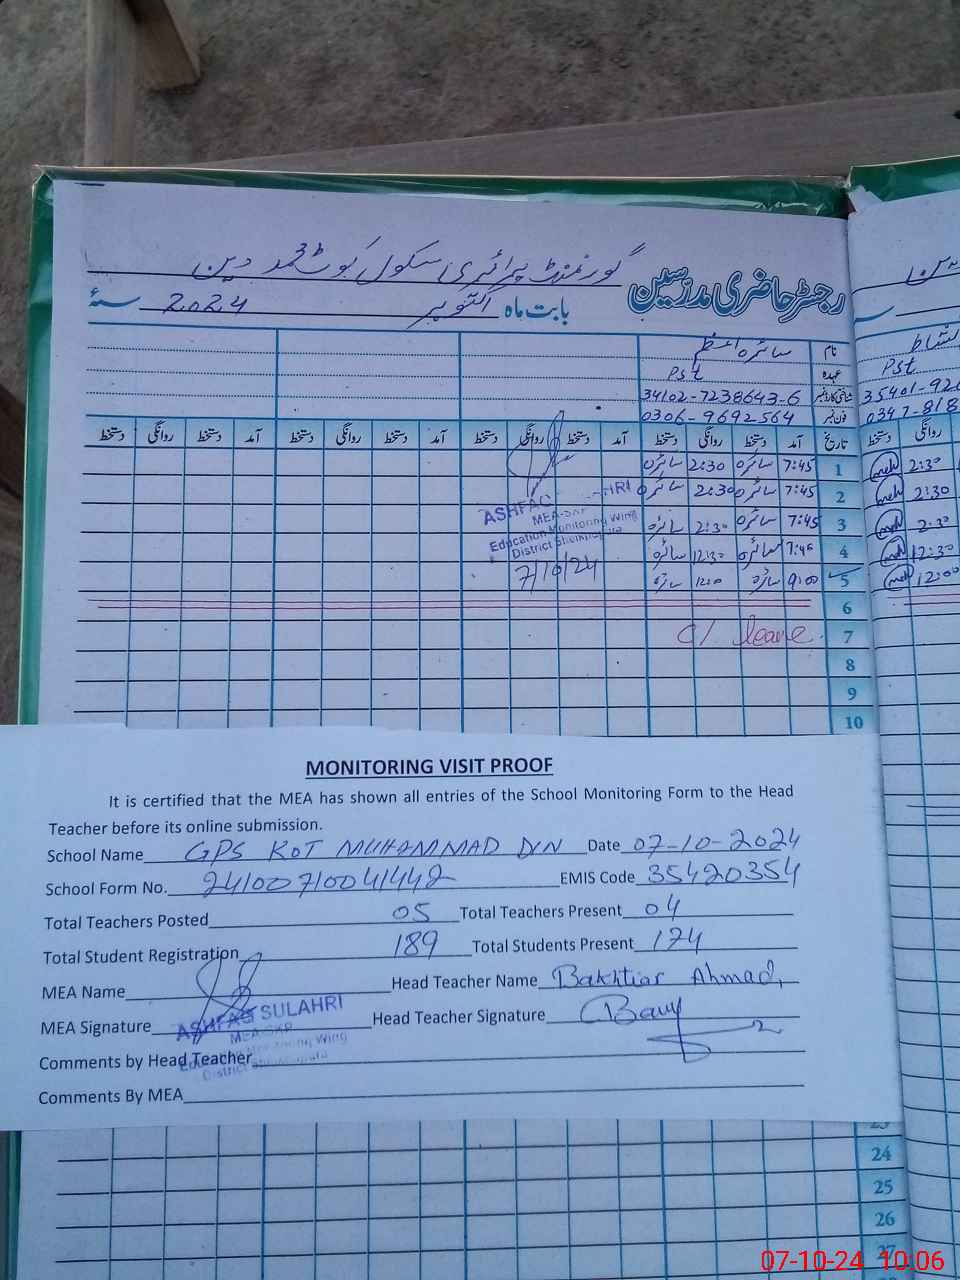 گورنمنٹ پرائمری سکول کوٹ محمد دین
رجسٹر حاضری مدرسین
بابت ماہ اکتوبر 2024 سنہء
نام سائرہ اعظم
عہدہ Pst
شناختی کارڈ نمبر 34102-7238643-6
فون نمبر 0306-9692564
تاریخ آمد دستخط روانگی دستخط آمد دستخط روانگی دستخط آمد دستخط روانگی دستخط آمد دستخط روانگی دستخط
1 7:45 سائرہ 2:30 سائرہ
2 7:45 سائرہ 2:30 سائرہ
3 7:45 سائرہ 2:30 سائرہ
4 7:45 سائرہ 12:30 سائرہ
5 9:00 سائرہ 12:0 سائرہ
6
7 C/ leave
8
9
10
ASHFAQ HRI
MEA-SKP
Education Monitoring Wing
District Sheikhupura
7/10/24
Pst
35401-920
0347-818
دستخط روانگی
meh 2:30
meh 2:30
meh 2:30
meh 12:30
meh 12:00
MONITORING VISIT PROOF
It is certified that the MEA has shown all entries of the School Monitoring Form to the Head
Teacher before its online submission.
School Name GPS KOT MUHAMMAD DIN Date 07-10-2024
School Form No. 24100710041442 EMIS Code 35420354
Total Teachers Posted 05 Total Teachers Present 04
Total Student Registration 189 Total Students Present 174
MEA Name Head Teacher Name Bakhtiar Ahmad,
MEA Signature Head Teacher Signature
ASHFAQ SULAHRI
MEA-SKP
Education Monitoring Wing
District Sheikhupura
Comments by Head Teacher
Comments By MEA
23
24
25
26
27
07-10-24 10:06